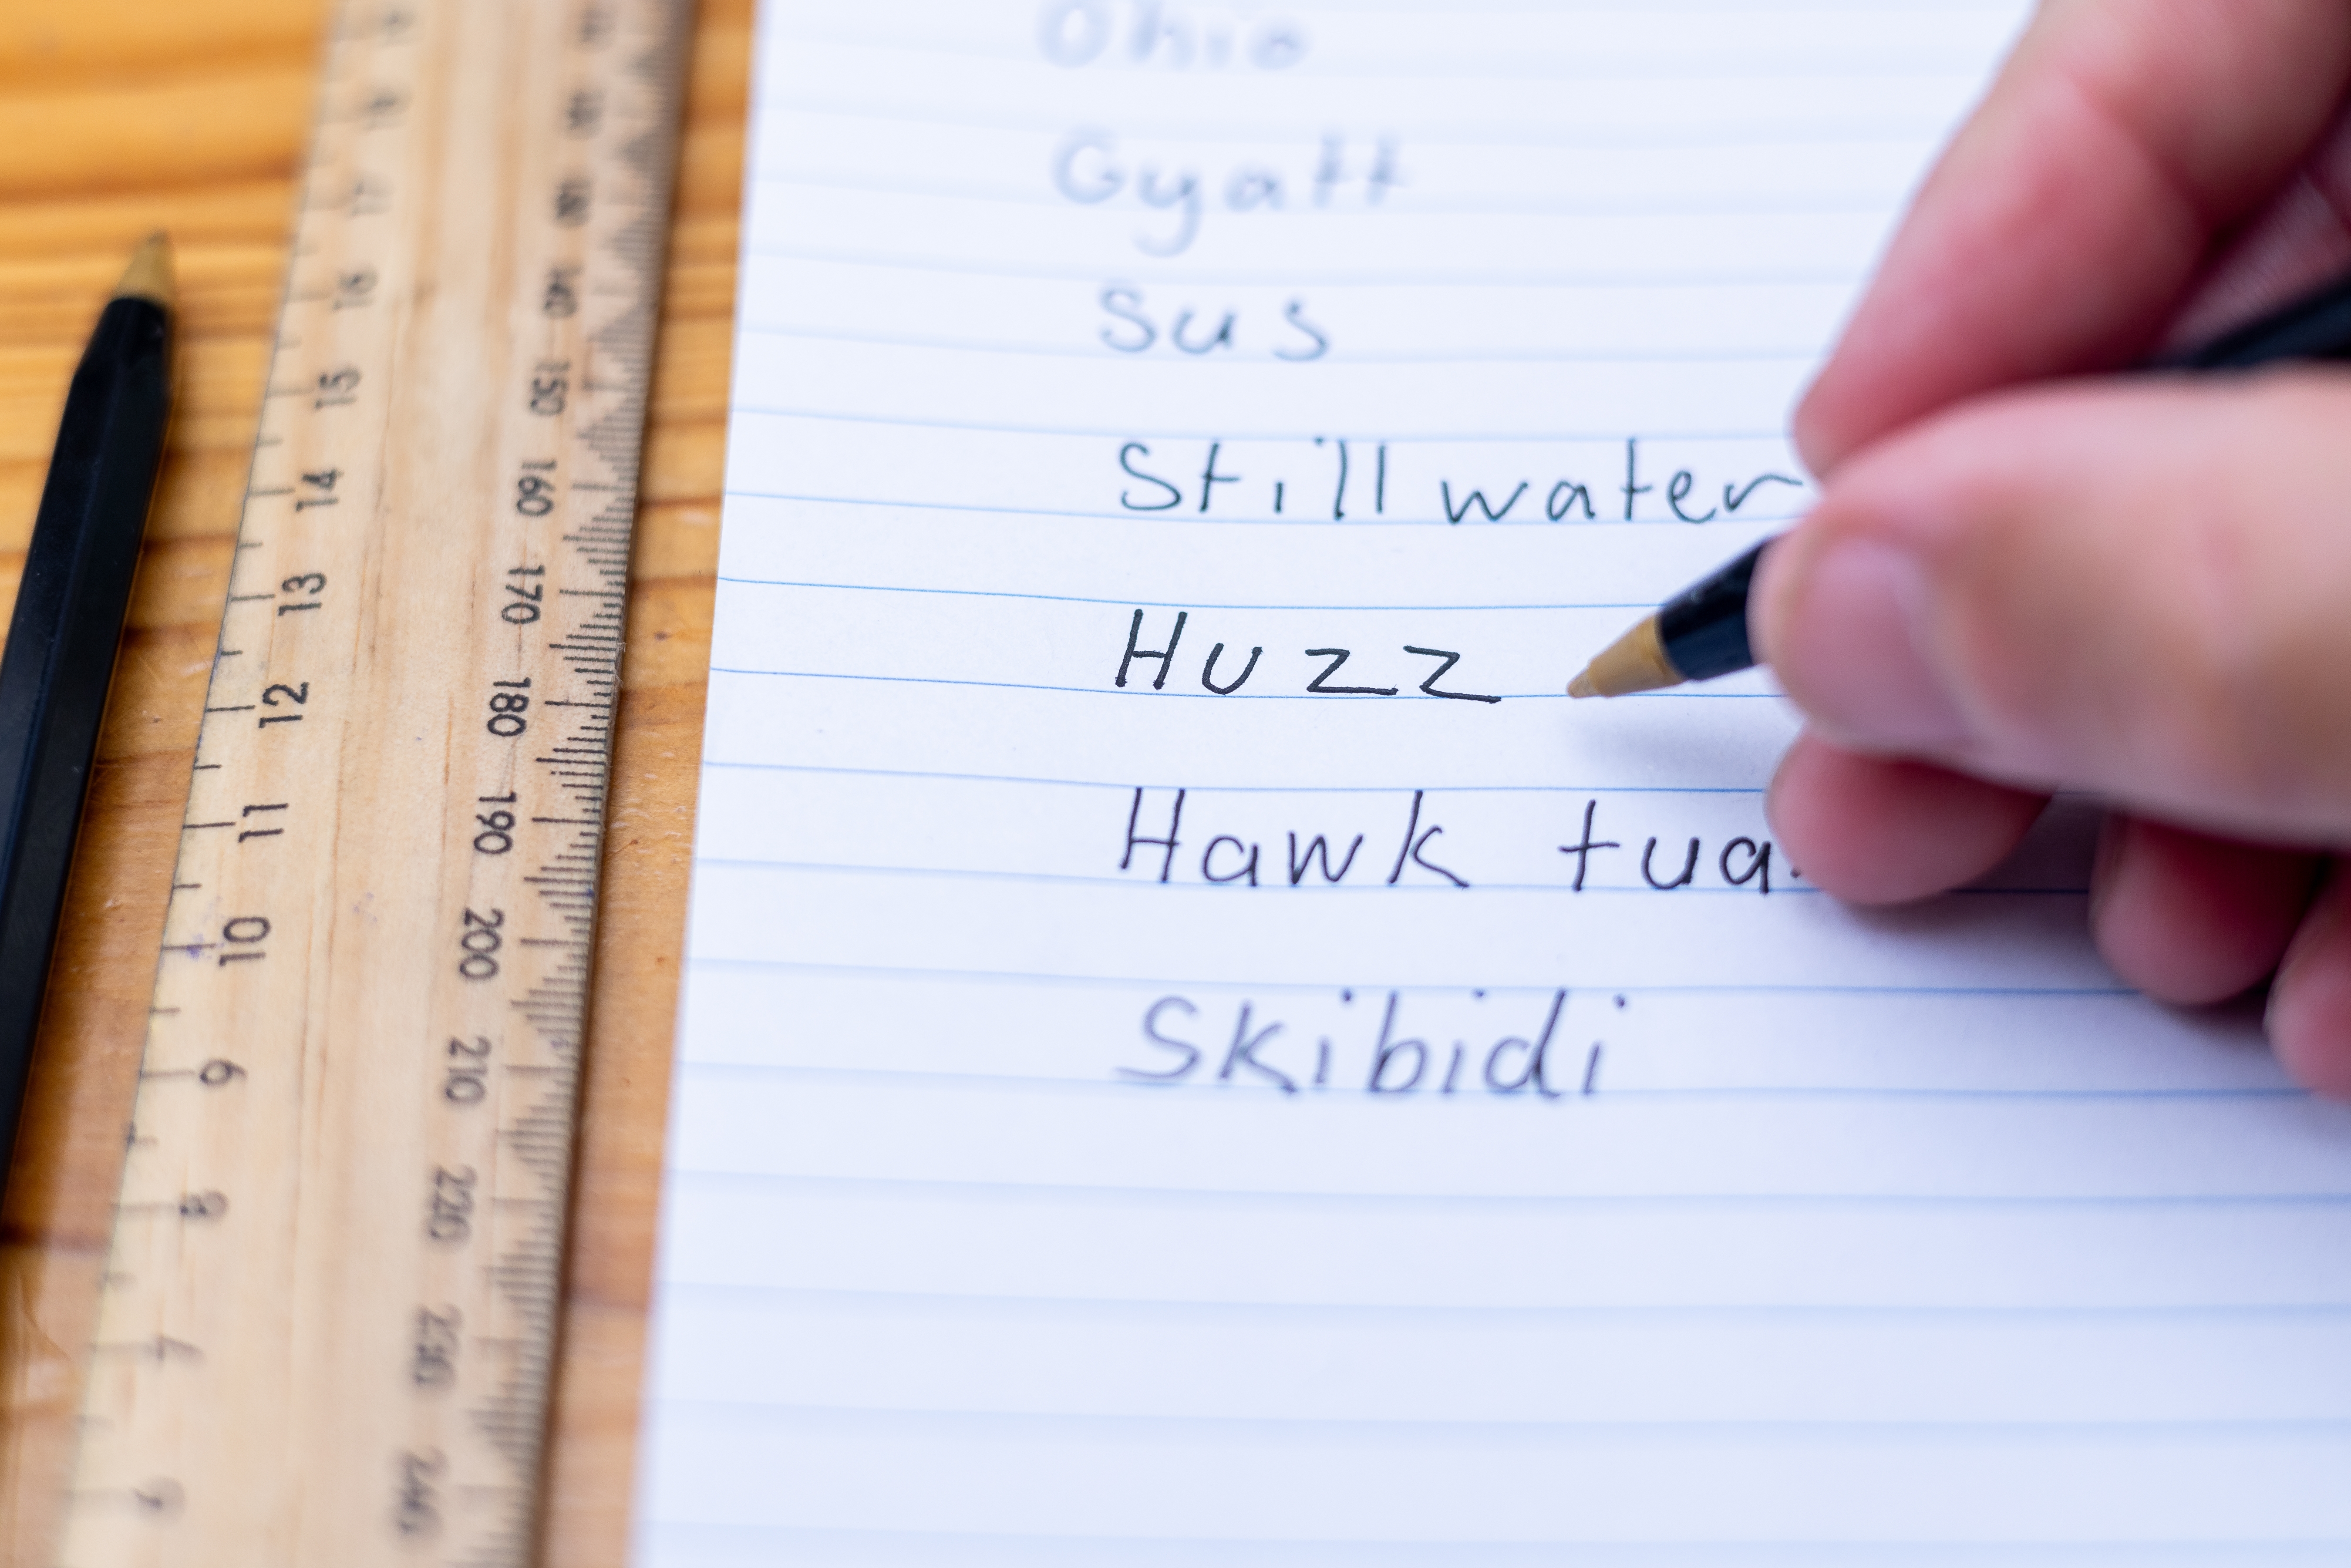 Ohio
Gyatt
Sus
Still water
Huzz
Hawk tua
Skibidi
17
16
15
14
13
12
11
10
9
8
7
140
150
160
170
180
190
200
210
220
230
240